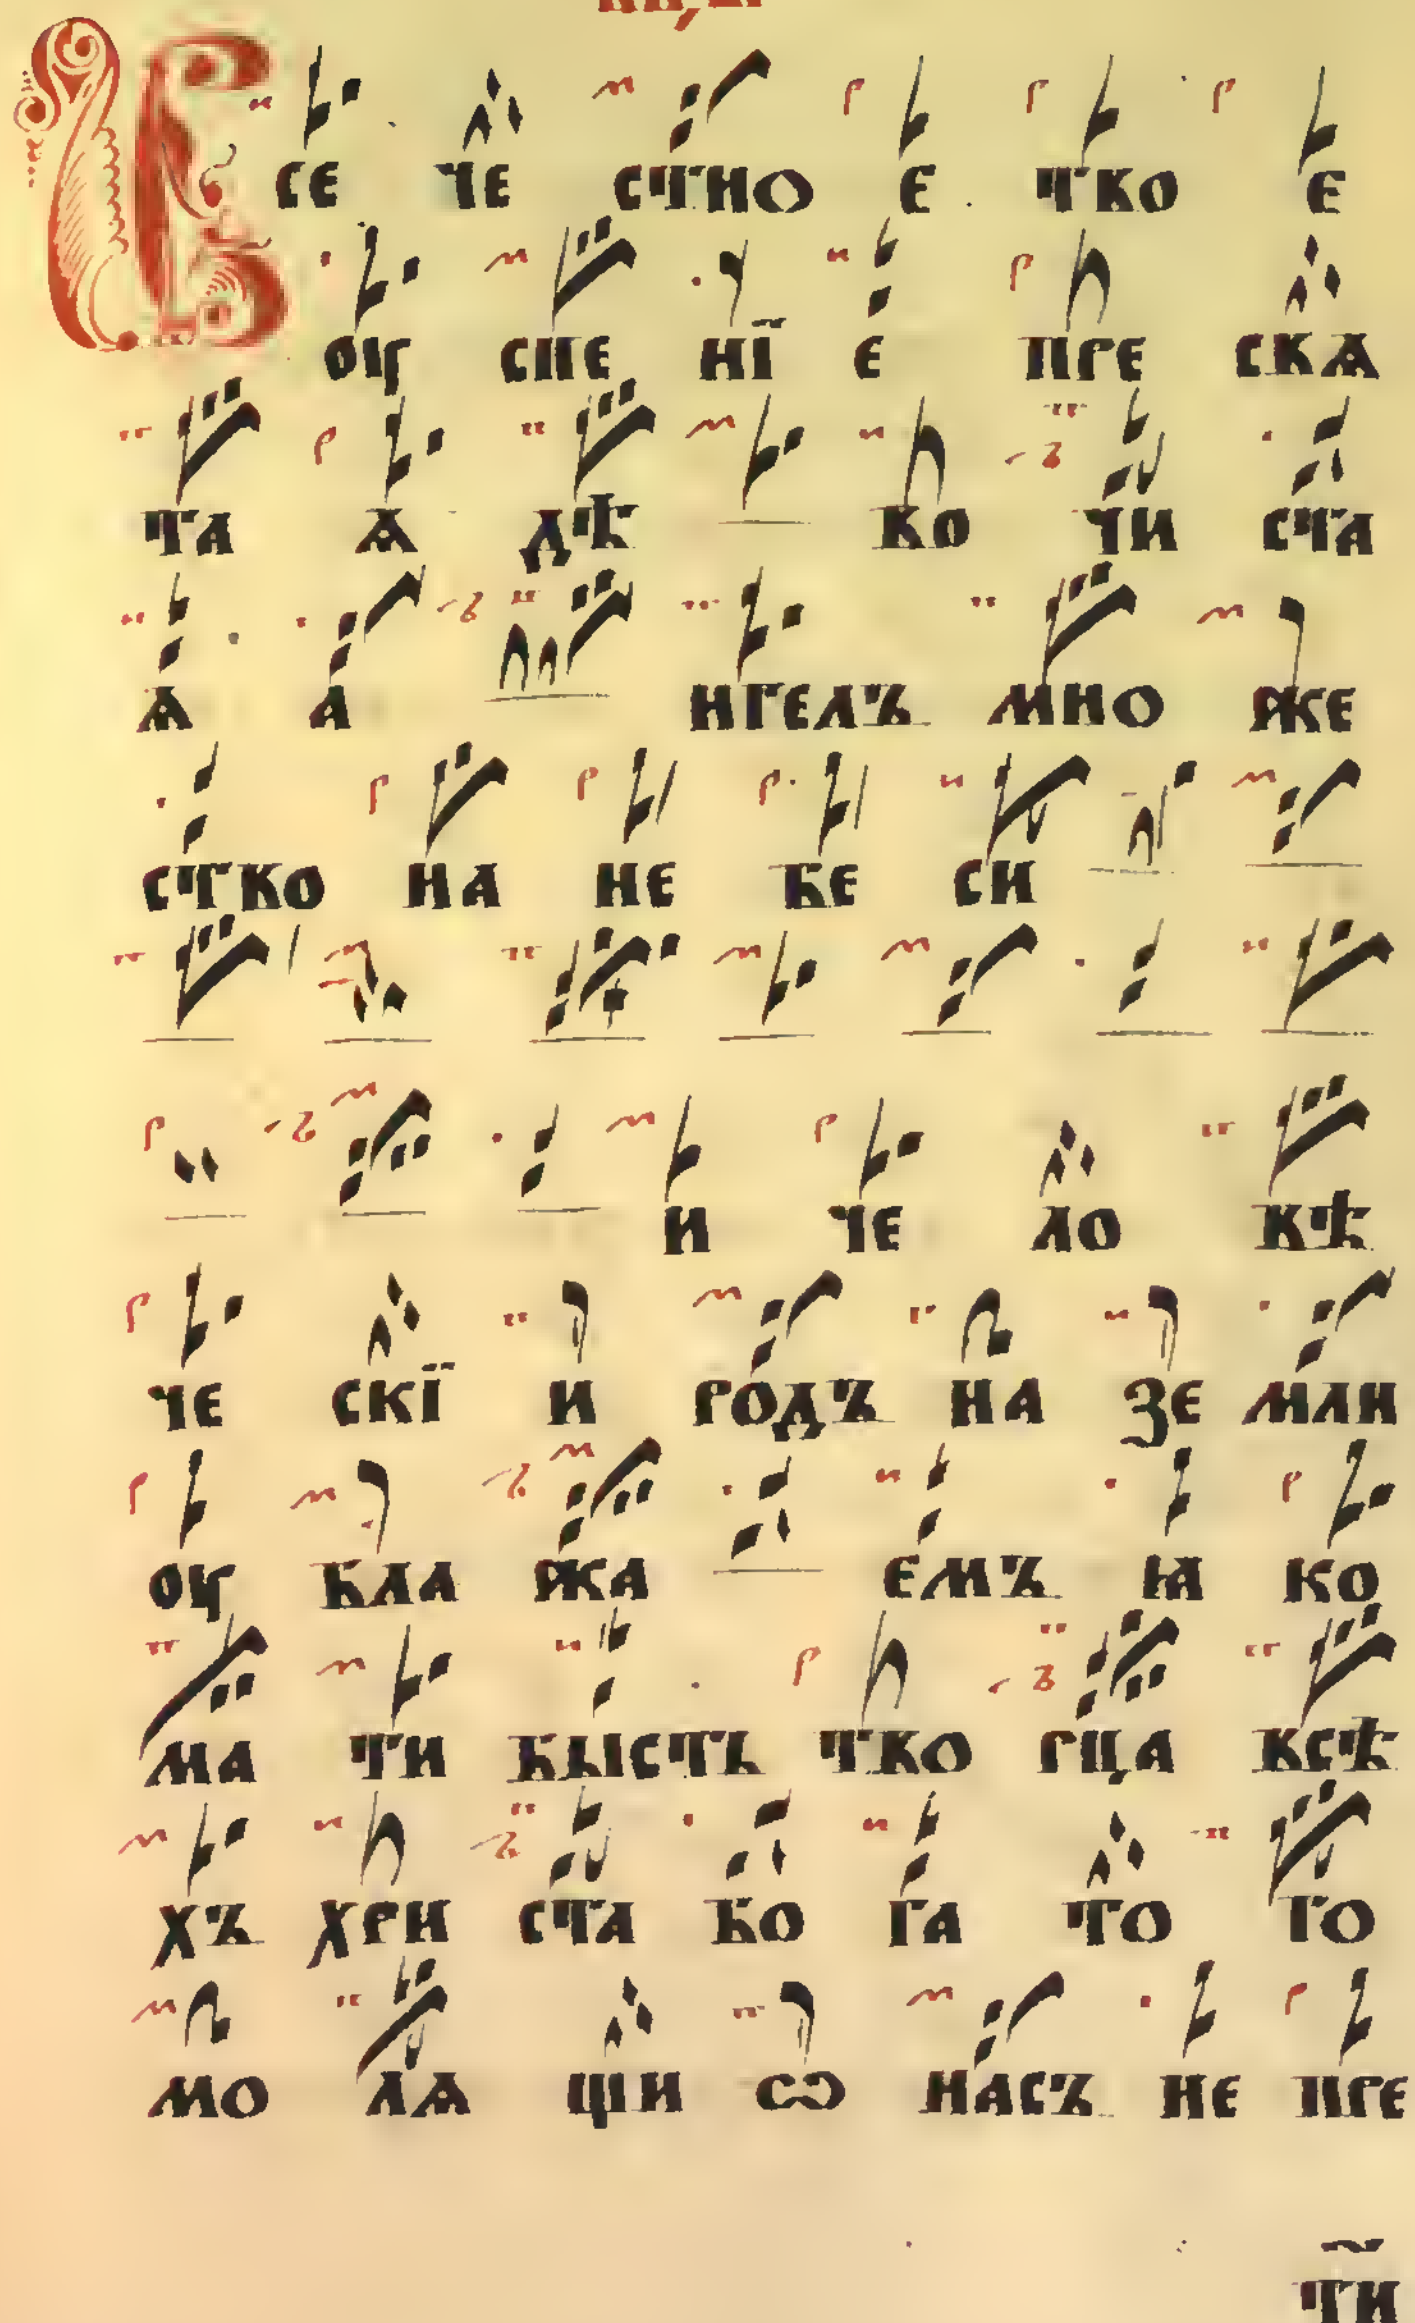 В СЕ ЧЕ СТНО Е ТВО Е
ОУ СПЕ НЇ Е ПРЕ СВѦ
ТА Ѧ ДѢ ВО ЧИ СТА
Ѧ А НГЕЛЪ МНО ЖЕ
СТВО НА НЕ БЕ СИ
И ЧЕ ЛО ВѢ
ЧЕ СКЇ И РОДЪ НА ЗЕ МЛИ
ОУ БЛА ЖА ЕМЪ Ꙗ КО
МА ТИ БЫСТЬ ТВО РЦА ВСѢ
ХЪ ХРИ СТА БО ГА ТО ГО
МО ЛѦ ЩИ Ѡ НАСЪ НЕ ПРЕ
ТИ